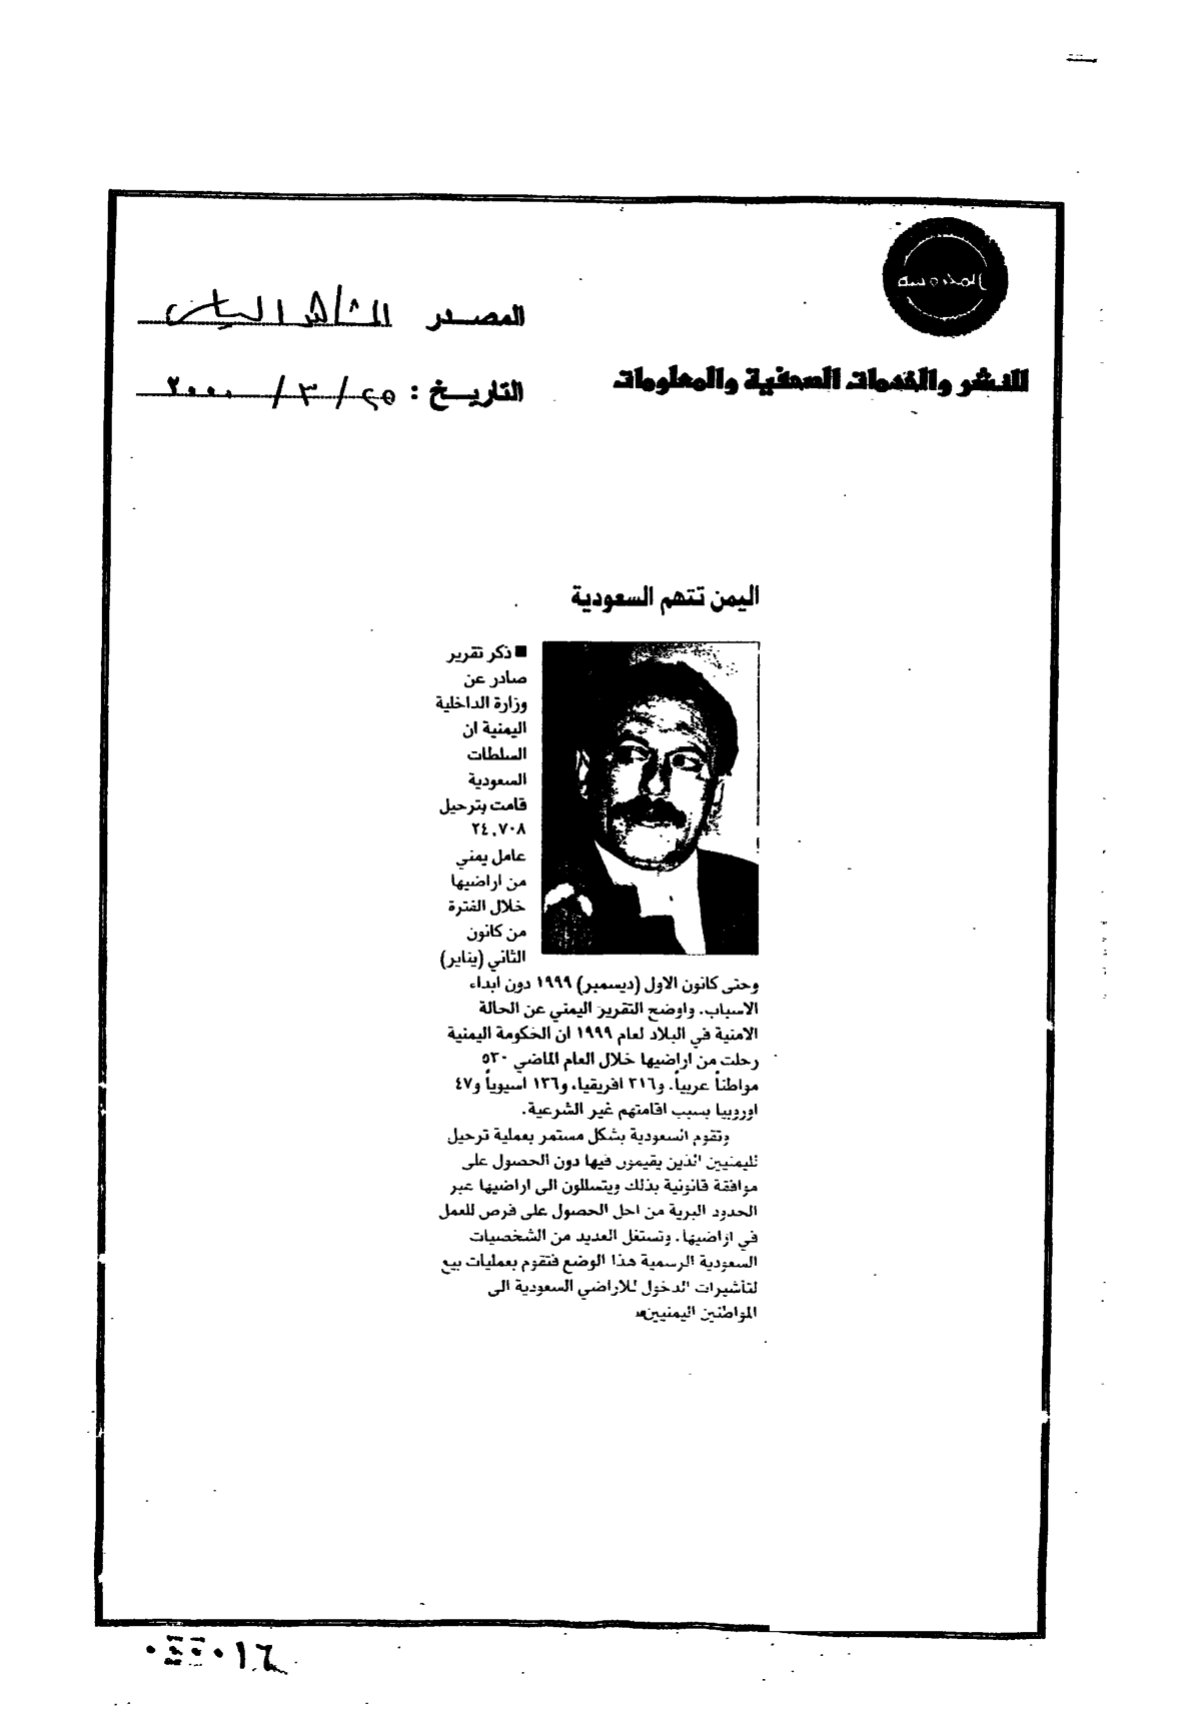 المصدر المشاهد السياسي
للنشر والخدمات الصحفية والمعلومات
التاريخ : ٢٥ / ٣ / ٢٠٠٠
اليمن تتهم السعودية
■ ذكر تقرير
صادر عن
وزارة الداخلية
اليمنية ان
السلطات
السعودية
قامت بترحيل
٢٤,٧٠٨
عامل يمني
من اراضيها
خلال الفترة
من كانون
الثاني (يناير)
وحتى كانون الاول (ديسمبر) ١٩٩٩ دون ابداء
الاسباب. واوضح التقرير اليمني عن الحالة
الامنية في البلاد لعام ١٩٩٩ ان الحكومة اليمنية
رحلت من اراضيها خلال العام الماضي ٥٣٠
مواطناً عربياً. و٣١٦ افريقيا، و١٣٦ اسيوياً و٤٧
اوروبيا بسبب اقامتهم غير الشرعية.
وتقوم السعودية بشكل مستمر بعملية ترحيل
لليمنيين الذين يقيمون فيها دون الحصول على
موافقة قانونية بذلك ويتسللون الى اراضيها عبر
الحدود البرية من اجل الحصول على فرص للعمل
في اراضيها. وتستغل العديد من الشخصيات
السعودية الرسمية هذا الوضع فتقوم بعمليات بيع
لتأشيرات الدخول للاراضي السعودية الى
المواطنين اليمنيين■